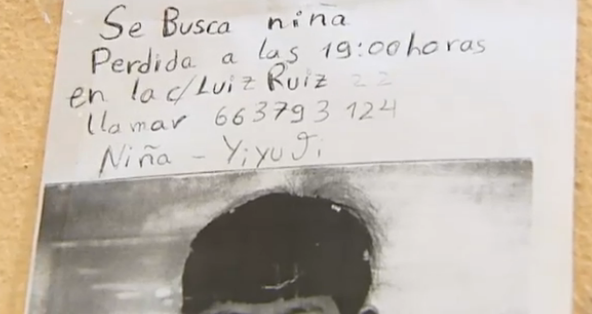 Se Busca niña
Perdida a las 19:00 horas
en la c/ Luiz Ruiz 22
llamar 663793 124
Niña - Yiyu Ji